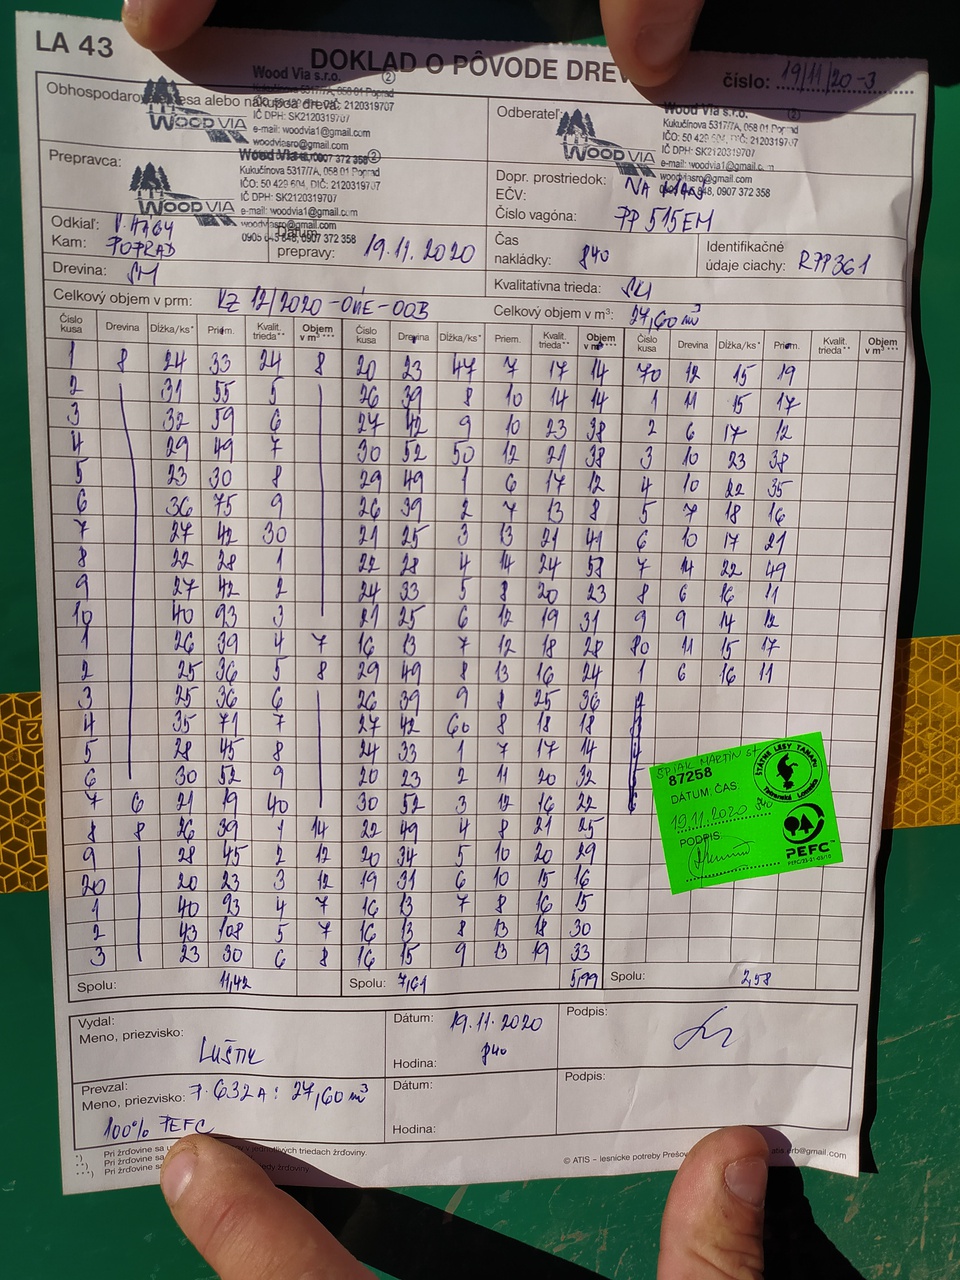 LA 43
DOKLAD O PÔVODE
číslo: 19/11/20-3
Wood Via s.r.o.
Kukučínova 5317/7A, 058 01 Poprad
IČ DPH: SK2120319707
e-mail: woodvia1@gmail.com
woodviasro@gmail.com
WOOD VIA
Odberateľ
Wood Via s.r.o.
Kukučínova 5317/7A, 058 01 Poprad
IČO: 50 429 604, DIČ: 2120319707
IČ DPH: SK2120319707
WOOD VIA
Prepravca:
Wood Via s.r.o.
Kukučínova 5317/7A, 058 01 Poprad
IČO: 50 429 604, DIČ: 2120319707
IČ DPH: SK2120319707
e-mail: woodvia1@gmail.com
WOOD VIA
Dopr. prostriedok: NA
EČV:
Číslo vagóna: PP 515EM
Odkiaľ:
Kam: POPRAD
Dátum
prepravy: 19.11.2020
Čas
nakládky: 840
Identifikačné
údaje ciachy: R77361
Drevina: SM
Kvalitatívna trieda:
Celkový objem v prm: KZ 12/2020-ONE-OOB
Celkový objem v m³: 27,60 m³
Číslo kusa Drevina Dĺžka/ks* Priem. Kvalit. trieda** Objem v m³ *** Číslo kusa Drevina Dĺžka/ks* Priem. Kvalit. trieda** Objem v m³ *** Číslo kusa Drevina Dĺžka/ks* Priem. Kvalit. trieda** Objem v m³ ***
1 8 24 33 24 8 20 23 47 7 17 14 70 12 15 19
2 31 55 5 26 39 8 10 14 14 1 11 15 17
3 32 59 6 27 42 9 10 23 38 2 6 17 12
4 29 49 7 30 52 50 12 21 38 3 10 23 38
5 23 30 8 29 49 1 6 17 12 4 10 22 35
6 36 75 9 26 39 2 7 13 8 5 7 18 16
7 27 42 30 21 25 3 13 21 41 6 10 17 21
8 22 28 1 22 28 4 14 24 58 7 14 22 49
9 27 42 2 24 33 5 8 20 23 8 6 16 11
10 40 93 3 21 25 6 12 19 31 9 9 14 12
1 26 39 4 7 16 13 7 12 18 28 80 11 15 17
2 25 36 5 8 29 49 8 13 16 24 1 6 16 11
3 25 36 6 26 39 9 8 25 36
4 35 71 7 27 42 60 8 18 18
5 28 45 8 24 33 1 7 17 14
6 30 52 9 20 23 2 11 20 32
7 6 21 19 40 30 52 3 12 16 22
8 8 26 39 1 14 22 49 4 8 21 25
9 28 45 2 12 20 34 5 10 20 29
20 20 23 3 12 19 31 6 10 15 16
1 40 93 4 7 16 13 7 8 16 15
2 43 108 5 7 16 13 8 13 18 30
3 23 30 6 8 16 15 9 13 19 33
Spolu: 11,42 Spolu: 7,61 5,99 Spolu: 2,58
SPIAK MARTIN
87258
DÁTUM, ČAS:
19.11.2020 840
PODPIS
ŠTÁTNE LESY TANAPU
Tatranská Lomnica
PEFC
Vydal:
Meno, priezvisko: LUŠTIK
Dátum: 19.11.2020
Hodina: 840
Podpis:
Prevzal:
Meno, priezvisko: 7.632A: 27,60 m³
100% PEFC
Dátum:
Hodina:
Podpis:
*) Pri žrďovine sa
v jednotlivých triedach žrďoviny.
**) Pri žrďovine sa
***) Pri žrďovine sa
© ATIS – lesnícke potreby Prešov